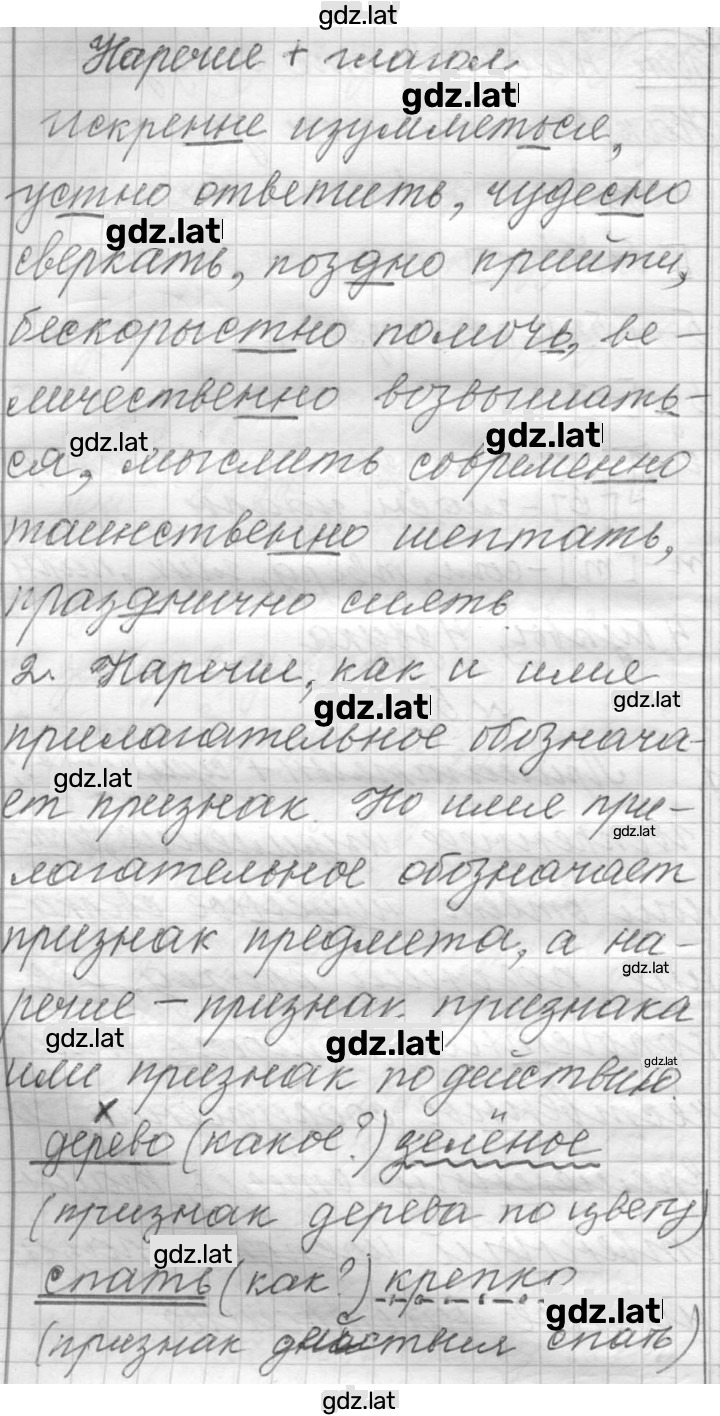 gdz.lat
Наречие + глагол.
gdz.lat
Искренне изумляться,
устно ответить, чудесно
gdz.lat
сверкать, поздно прийти,
бескорыстно помочь, ве-
личественно возвышать-
gdz.lat gdz.lat
ся, мыслить современно
таинственно шептать,
празднично сиять
2. Наречие, как и имя
gdz.lat gdz.lat
прилагательное обознача-
gdz.lat
ет признак. Но имя при-
gdz.lat
лагательное обозначает
признак предмета, а на-
gdz.lat
речие – признак признака
gdz.lat gdz.lat gdz.lat
или признак по действию.
х
дерево (какое?) зелёное
(признак дерева по цвету)
gdz.lat
спать (как?) крепко
gdz.lat
(признак действия спать)
gdz.lat